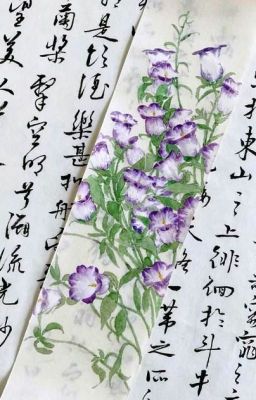 於東山之上徘徊於斗牛
一葦之所
是飲酒樂甚扣舷
蘭槳擊空明兮溯流光渺
望美人